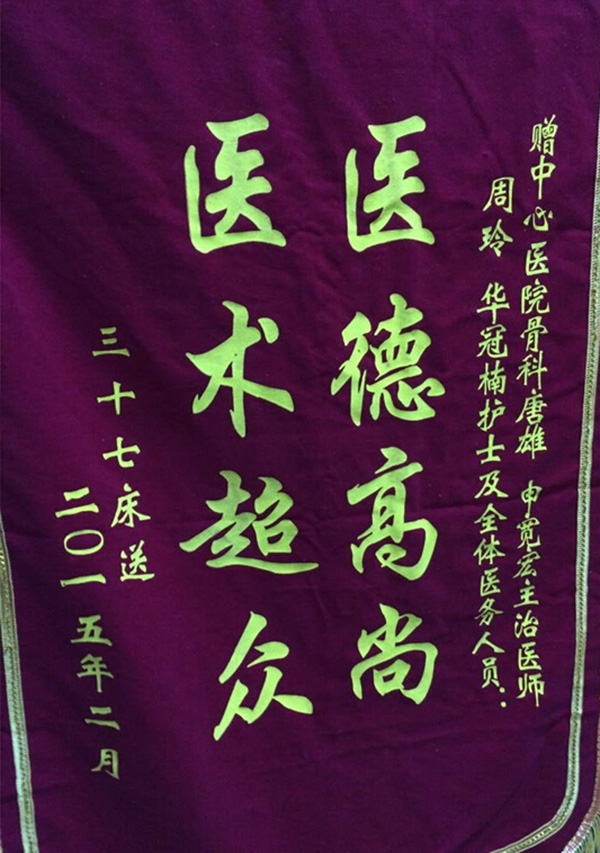 赠中心医院骨科唐雄 申宽宏主治医师
周玲 华冠楠护士及全体医务人员：
医德高尚
医术超众
三十七床送
二〇一五年二月